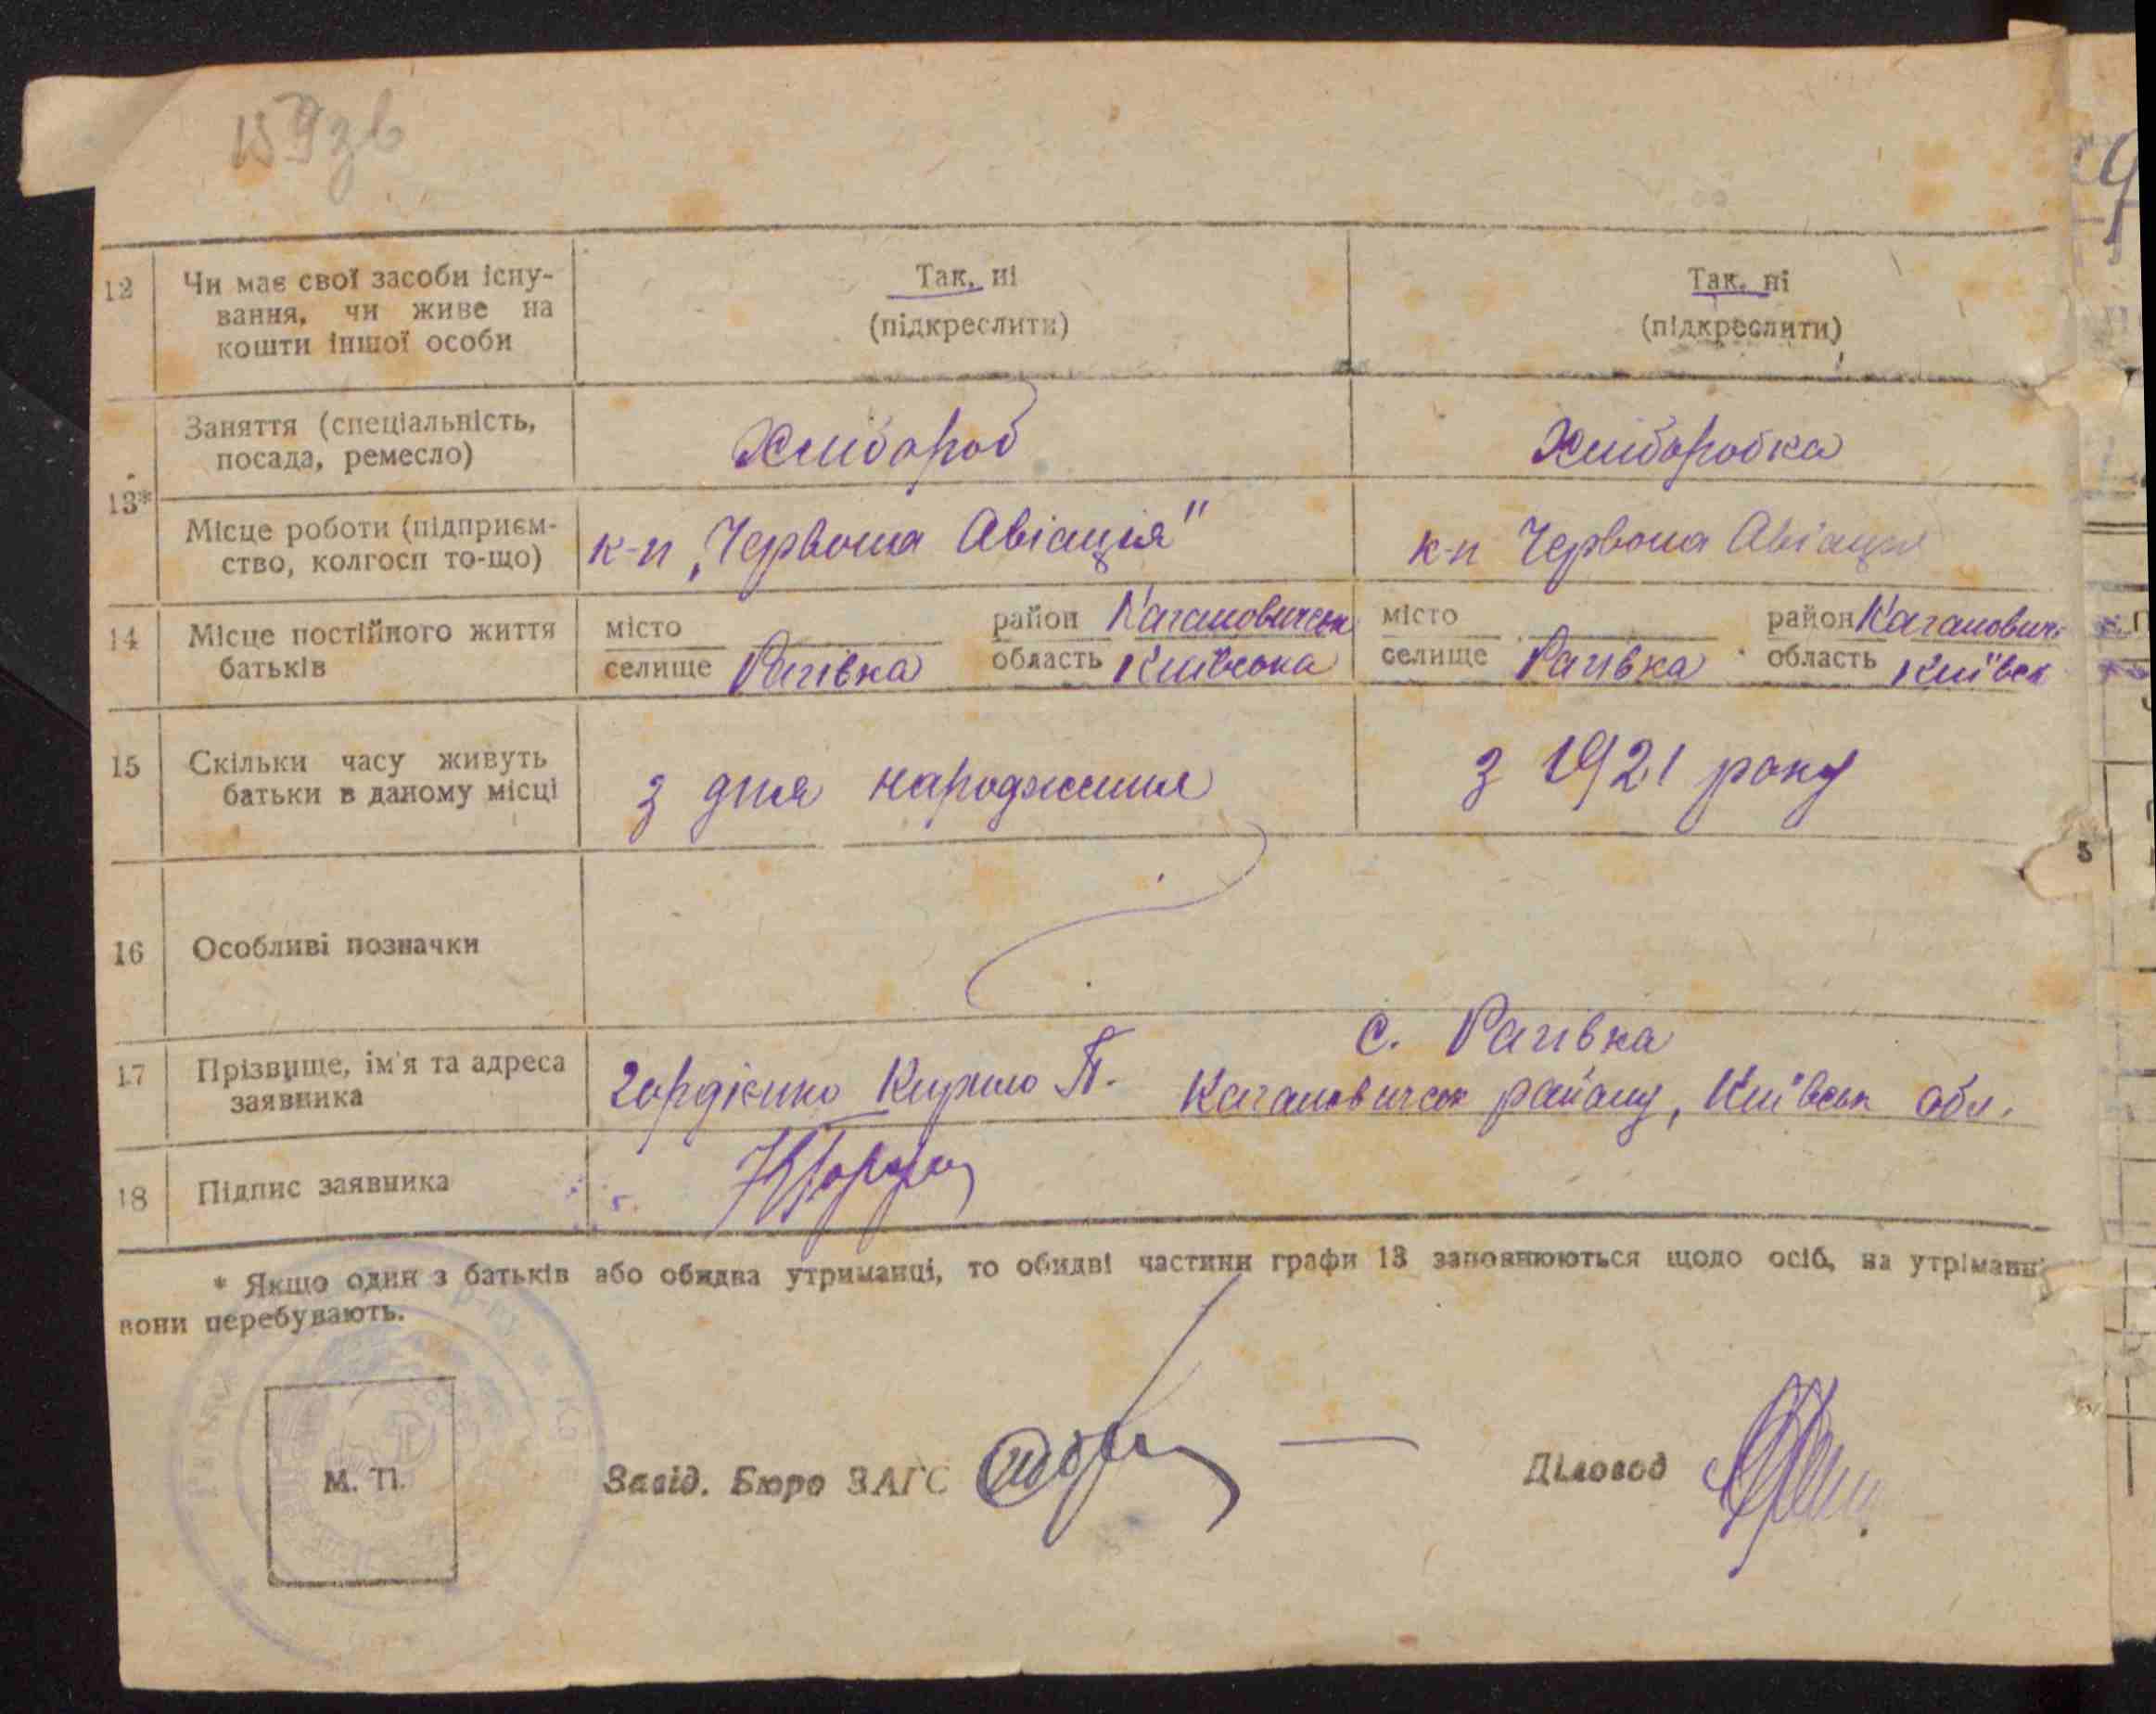 159зв
12 Чи має свої засоби існу-
вання, чи живе на
кошти іншої особи
Так, ні
(підкреслити)
Так, ні
(підкреслити)
13*
Заняття (спеціальність,
посада, ремесло)
Хлібороб
Хліборобка
Місце роботи (підприєм-
ство, колгосп то-що)
к-п „Червона Авіація"
к-п Червона Авіація
14 Місце постійного життя
батьків
місто
селище Рагівка
район Кагановичськ
область Київська
місто
селище Рагівка
район Каганович.
область Київськ
15 Скільки часу живуть
батьки в даному місці
з дня народження
з 1921 року
16 Особливі позначки
17 Прізвище, ім'я та адреса
заявника
Гордієнко Кирило П.
с. Рагівка
Кагановичськ району, Київськ обл.
18 Підпис заявника
* Якщо один з батьків або обидва утриманці, то обидві частини графи 13 заповнюються щодо осіб, на утріманні
вони перебувають.
М. П.
Завід. Бюро ЗАГС
Діловод